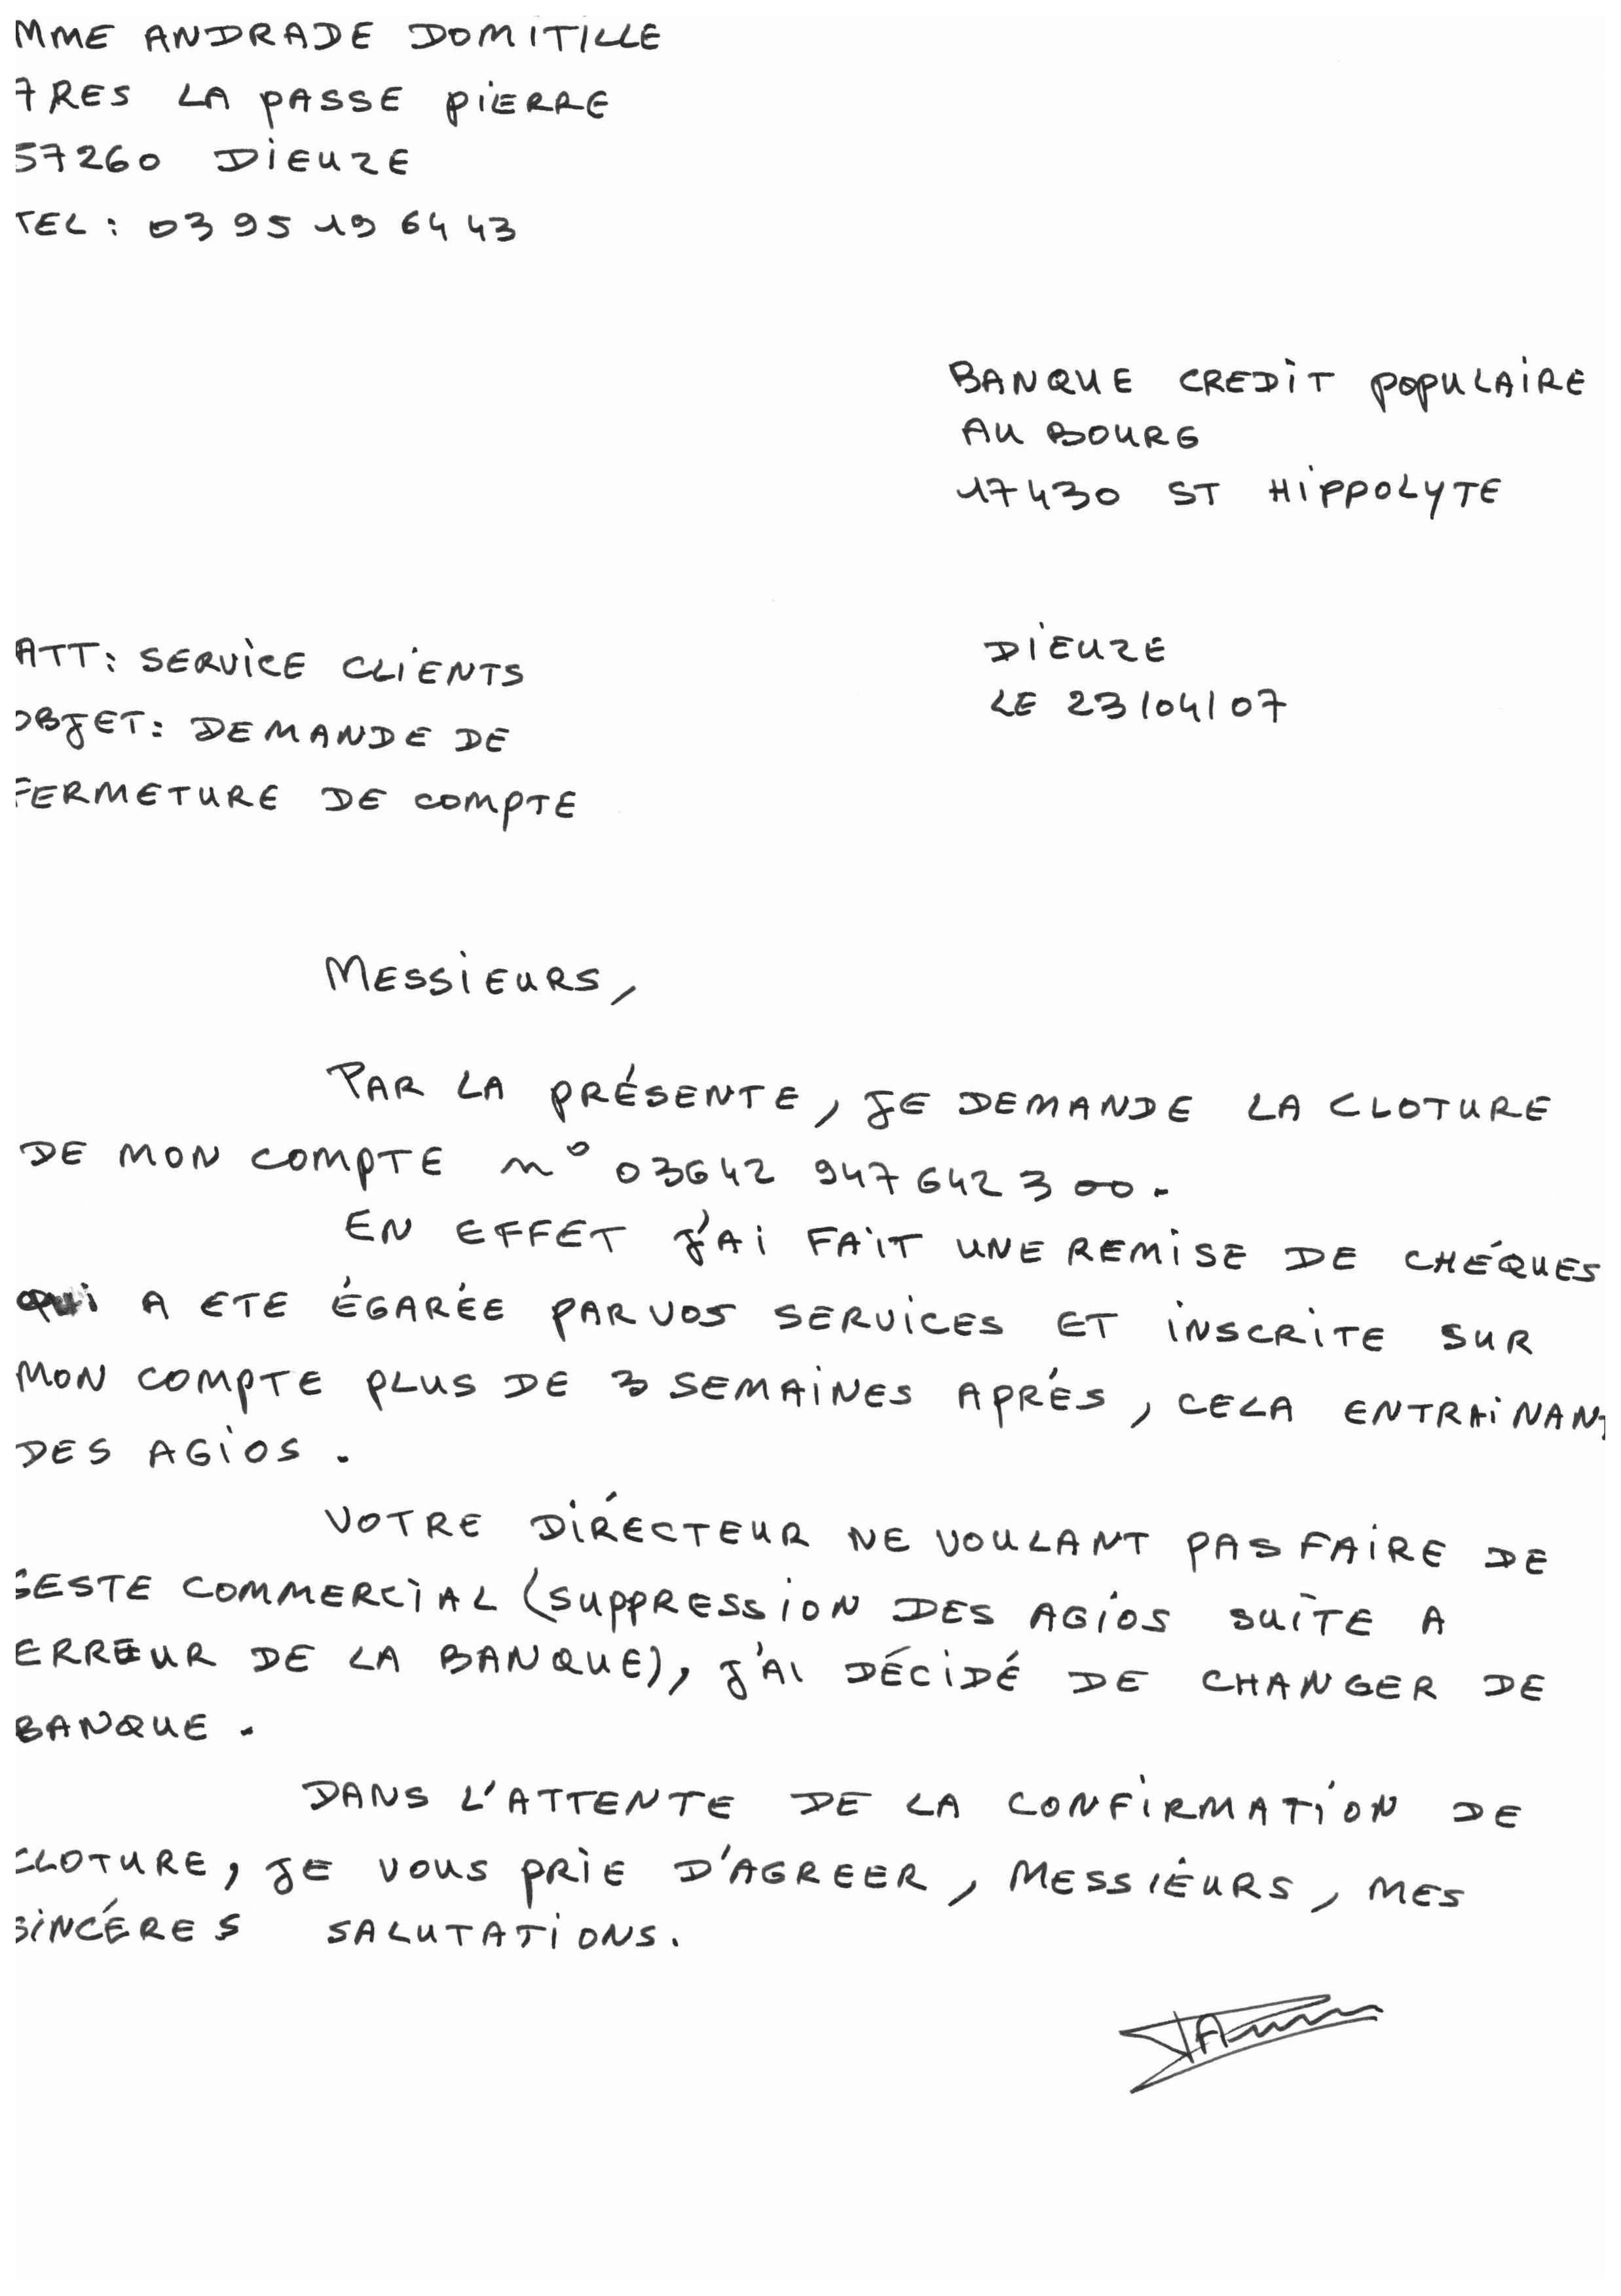 MME ANDRADE DOMITILLE
7 RES LA PASSE PIERRE
57260 DIEUZE
TEL : 03 95 19 64 43
BANQUE CREDIT POPULAIRE
AU BOURG
17430 ST HIPPOLYTE
ATT : SERVICE CLIENTS
OBJET : DEMANDE DE
FERMETURE DE COMPTE
DIEUZE
LE 23/04/07
MESSIEURS,
PAR LA PRÉSENTE, JE DEMANDE LA CLOTURE
DE MON COMPTE n° 03642 947642 300.
EN EFFET J'AI FAIT UNE REMISE DE CHÉQUES
QUI A ETE ÉGARÉE PAR VOS SERVICES ET INSCRITE SUR
MON COMPTE PLUS DE 3 SEMAINES APRÉS, CELA ENTRAINANT
DES AGIOS.
VOTRE DIRECTEUR NE VOULANT PAS FAIRE DE
GESTE COMMERCIAL (SUPPRESSION DES AGIOS SUITE A
ERREUR DE LA BANQUE), J'AI DÉCIDÉ DE CHANGER DE
BANQUE.
DANS L'ATTENTE DE LA CONFIRMATION DE
CLOTURE, JE VOUS PRIE D'AGREER, MESSIEURS, MES
SINCÉRES SALUTATIONS.